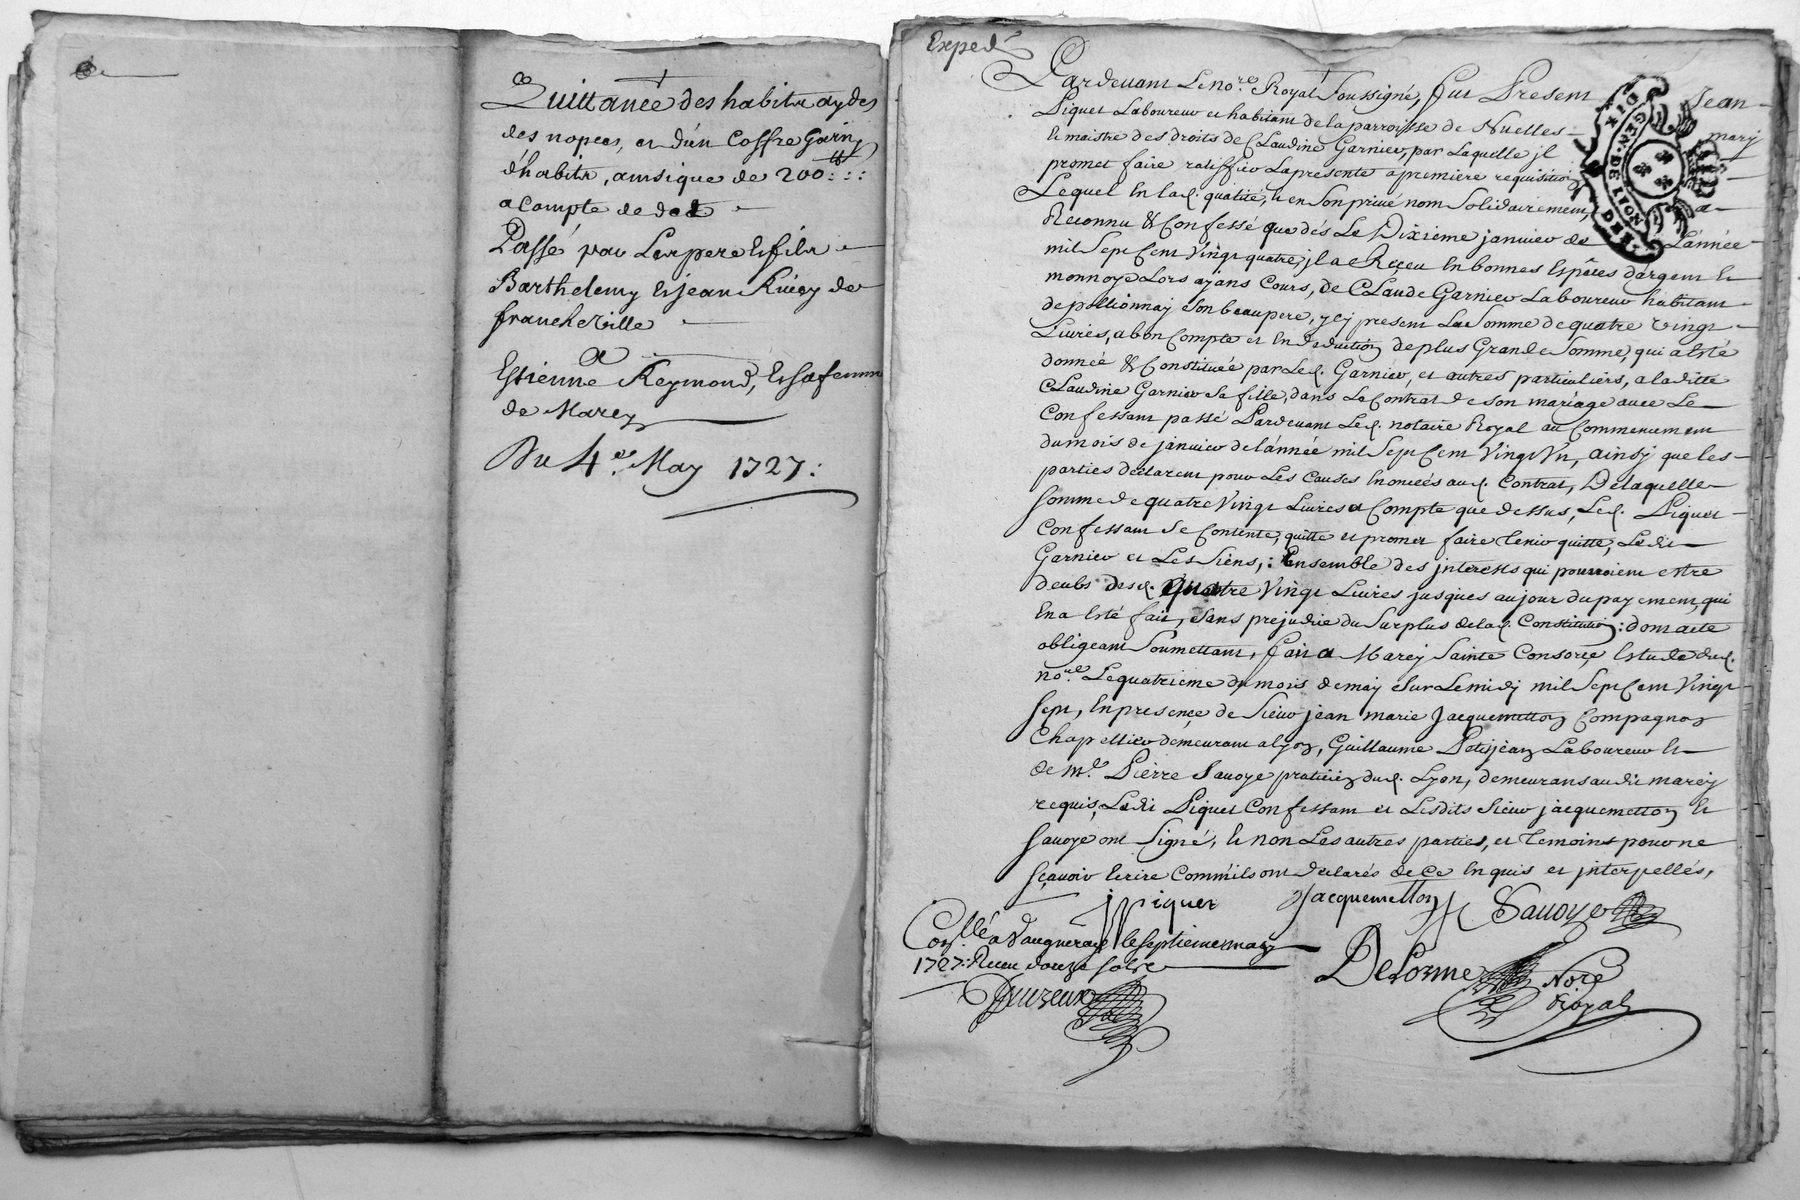 Quittance des habits aydes
des nopces, et d'un Coffre Garny
d'habits, ainsique de 200:::
a Compte de dot
Passé par Les pere et fils
Barthelemy et jean Riviere de
francheville
a
Estienne Reymond, et sa femme
de Marcy
Du 4e. May 1727:
Exped.
Pardevant Le no.re Royal Soussigné, fut Present Jean
Piquet Laboureur et habitant de la parroisse de Nuelles mary
et maistre des droits de Claudine Garnier, par Laquelle jl
promet faire ratiffier La presente a premiere requisition
Lequel En lad. qualité, et en Son privé nom Solidairement, a
Reconnu & Confessé que dés Le Dixieme janvier de L'année
mil Sept Cent Vingt quatre, jl a Reçeu En bonnes Espéces d'argent et
monnoye Lors ayans Cours, de Claude Garnier Laboureur habitant
de pollionnay Son beaupere, jcy present La Somme de quatre Vingt
Livres, a bon Compte et En deduction de plus Grande Somme, qui a Esté
donnée & Constituée par Led. Garnier, et autres particuliers, a laditte
Claudine Garnier Sa fille, dans Le Contrat de Son mariage avec Le
Confessant passé Pardevant Led. notaire Royal au Commencement
du mois de janvier de l'année mil Sept Cent Vingt Un, ainsy que les
parties declarent pour Les Causes Enoncées aud. Contrat, De laquelle
Somme de quatre Vingt Livres a Compte que dessus, Led. Piquet
Confessant Se Contente, quitte et promet faire Tenir quitte, Ledit
Garnier et Les Siens,: Ensemble des jnterests qui pourroient estre
deubs desd. quatre Vingt Livres jusques au jour du payement qui
En a Esté fait, Sans prejudice du Surplus de lad. Constitution: dont acte
obligeant Soumettant, fait a Marcy Sainte Consorçe Estude dud.
no.re Le quatrieme du mois de may Sur Le midy mil Sept Cent Vingt
Sept, En presençe de Sieur jean marie Jacquemetton Compagnon
Chapellier demeurant a Lyon, Guillaume Petitjean Laboureur et
de Me. Pierre Savoye praticien dud. Lyon, demeurans audit marcy
requis, Ledit Piquet Confessant et Lesdits Sieur jacquemetton et
Savoye ont Signé, et non Les autres parties, et Temoins pour ne
Sçavoir Ecrire Comm'ils ont declarés de Ce Enquis et jnterpellés,
J Piquet Jacquemetton Savoye
Con.llé a Vaugneray le Septieme may
1727: Reçeu douze Sols
DeLorme No.re
Royal
GEN. DE LYON